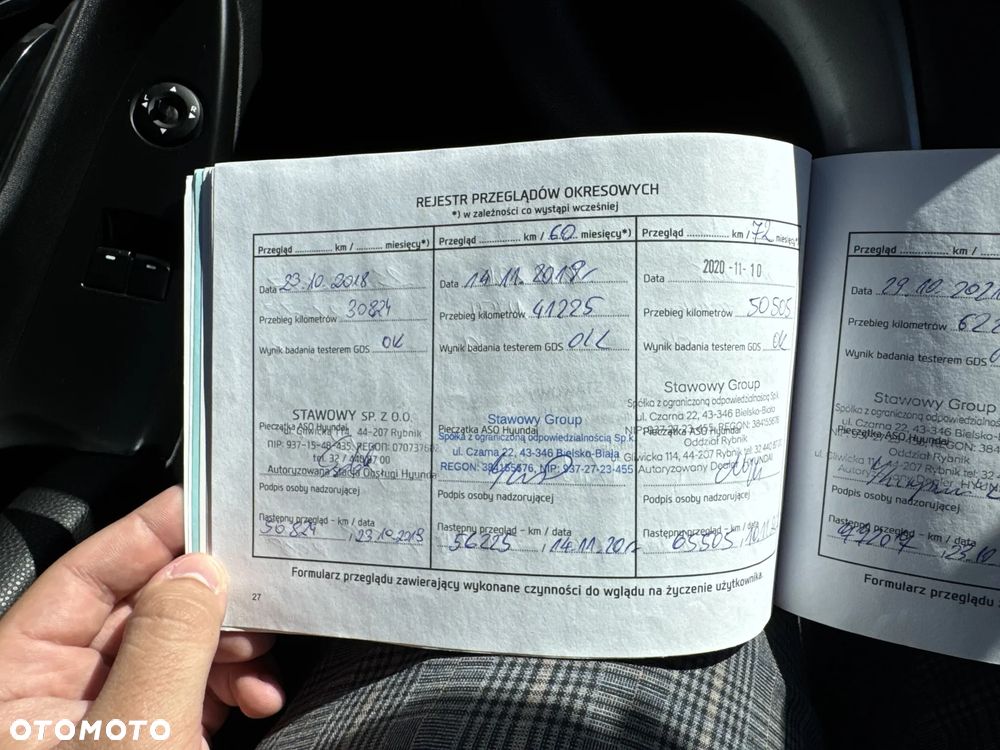 REJESTR PRZEGLĄDÓW OKRESOWYCH
*) w zależności co wystąpi wcześniej
Przegląd ............... km / .......... miesięcy*)
Data 23.10.2018
Przebieg kilometrów 30824
Wynik badania testerem GDS OK
STAWOWY SP. Z O.O.
Pieczątka ASO Hyundai
ul. Gliwicka 114, 44-207 Rybnik
NIP: 937-15-48-435, REGON:
tel. 32 /
Autoryzowana Stacja Obsługi Hyundai
Podpis osoby nadzorującej
Następny przegląd – km / data
50824, 23.10.2019
Przegląd ............... km / 60 miesięcy*)
Data 14.11.2019r
Przebieg kilometrów 41225
Wynik badania testerem GDS OK
Stawowy Group
Pieczątka ASO Hyundai
Spółka z ograniczoną odpowiedzialnością Sp.k.
ul. Czarna 22, 43-346 Bielsko-Biała
REGON: 384155676, NIP: 937-27-23-455
Podpis osoby nadzorującej
Następny przegląd – km / data
56225, 14.11.20r
Przegląd ............... km / 72 miesięcy*)
Data 2020-11-10
Przebieg kilometrów 50505
Wynik badania testerem GDS OK
Stawowy Group
Spółka z ograniczoną odpowiedzialnością Sp.k.
ul. Czarna 22, 43-346 Bielsko-Biała
Pieczątka ASO Hyundai
NIP: 937-27-23-455, REGON: 384155676
Oddział Rybnik
Gliwicka 114, 44-207 Rybnik tel. 32
Autoryzowany Dealer HYUNDAI
Podpis osoby nadzorującej
Następny przegląd – km / data
65505, 10.11.
Formularz przeglądu zawierający wykonane czynności do wglądu na życzenie użytkownika.
27
Przegląd ............... km /
Data 29.10.2021
Przebieg kilometrów
Wynik badania testerem GDS
Stawowy Group
Spółka z ograniczoną odpowiedzialno
ul. Czarna 22, 43-346 Bielsko-
Pieczątka ASO Hyundai
REGON:
Oddział Rybnik
ul. Gliwicka 114, 44-207 Rybnik tel. 32
Autoryzowany Dealer HYU
Podpis osoby nadzorującej
Następny przegląd – km / data
Formularz przeglądu
OTOMOTO